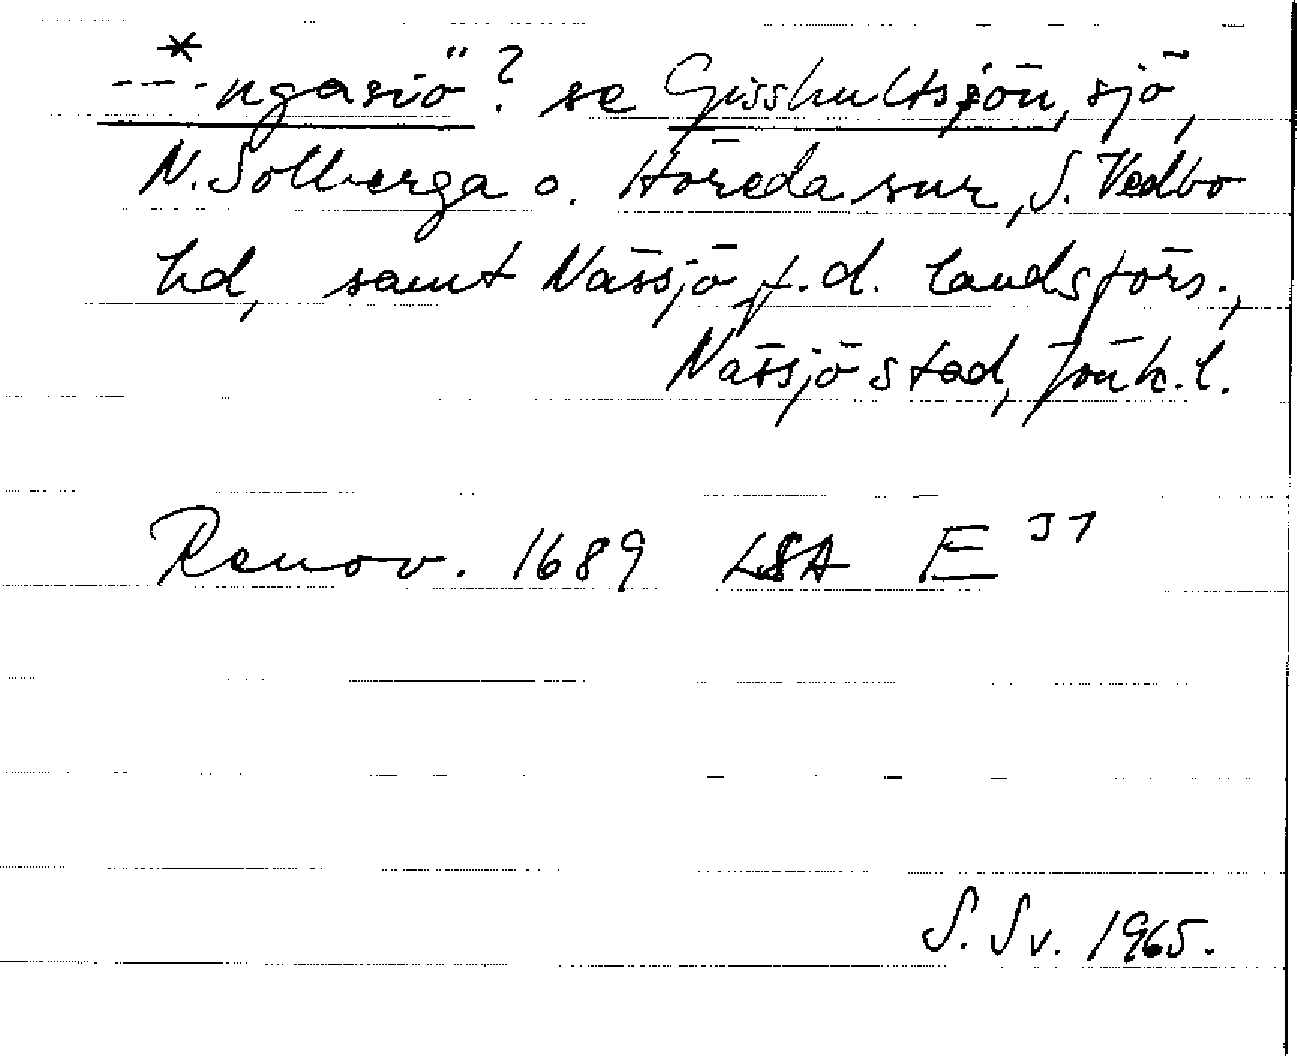 *
---ngasiö? se Gisshultsjön, sjö,
N. Solberga o. Höreda snr, S. Vedbo
hd, samt Nässjö f.d. landsförs.,
Nässjö stad, Jönk. l.
Renov. 1689 LSA E 37
S. Sv. 1965.